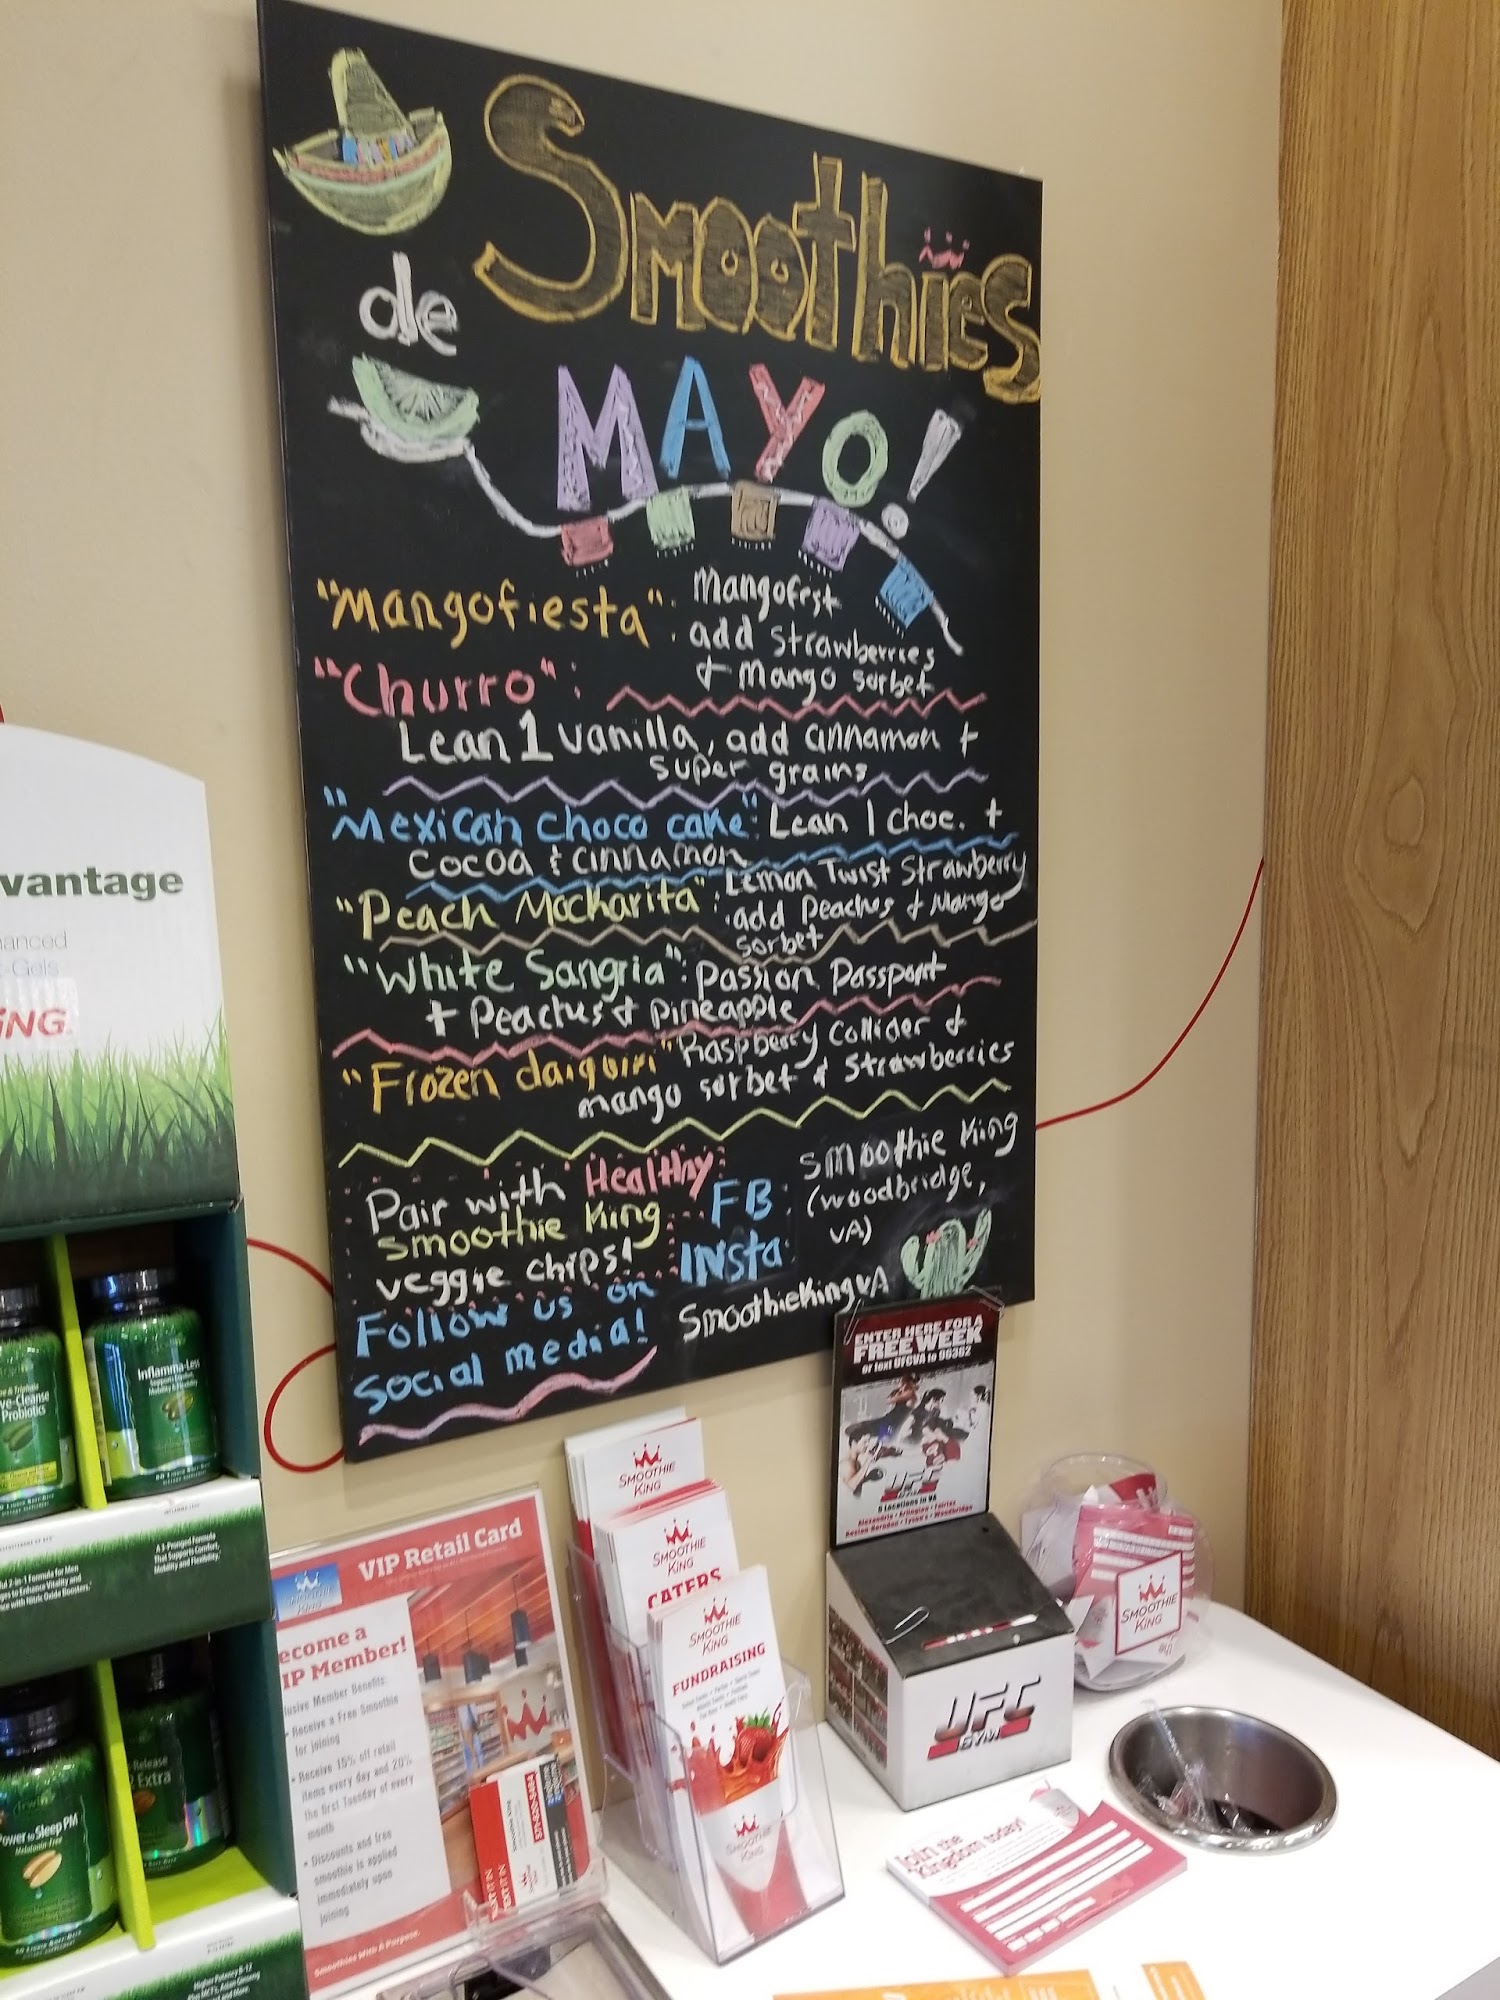 Smoothies
de
MAYO!
"Mangofiesta": Mangofest
add strawberries
& mango sorbet
"Churro":
Lean 1 vanilla, add cinnamon +
super grains
"Mexican choco cake": Lean 1 choc. +
cocoa & cinnamon
"Peach Mockarita": Lemon Twist Strawberry
add Peaches & Mango
sorbet
"White Sangria": Passion Passport
+ Peaches & pineapple
"Frozen daiquiri" Raspberry Collider &
mango sorbet & strawberries
Pair with Healthy
smoothie King
veggie chips!
Follow us on
social media!
FB
Insta
smoothie King
(woodbridge,
VA)
SmoothieKingvA
vantage
anced
-Gels
iNG
Inflamma-Less
ve-Cleanse
Probiotics
A 3-Pronged Formula
That Supports Comfort,
Mobility and Flexibility.
Release
Extra
Power to Sleep PM
Melatonin-Free
VIP Retail Card
SMOOTHIE
KING
ecome a
IP Member!
lusive Member Benefits:
Receive a Free Smoothie
for joining
Receive 15% off retail
items every day and 20%
the first Tuesday of every
month
Discounts and free
smoothie is applied
immediately upon
joining
Smoothies With A Purpose.
SMOOTHIE
KING
SMOOTHIE
KING
CATERS
SMOOTHIE
KING
FUNDRAISING
SMOOTHIE
KING
ENTER HERE FOR A
FREE WEEK
or text UFCVA to 90382
UFC
5 Locations in VA
UFC
GYM
SMOOTHIE
KING
Join the
Kingdom today!